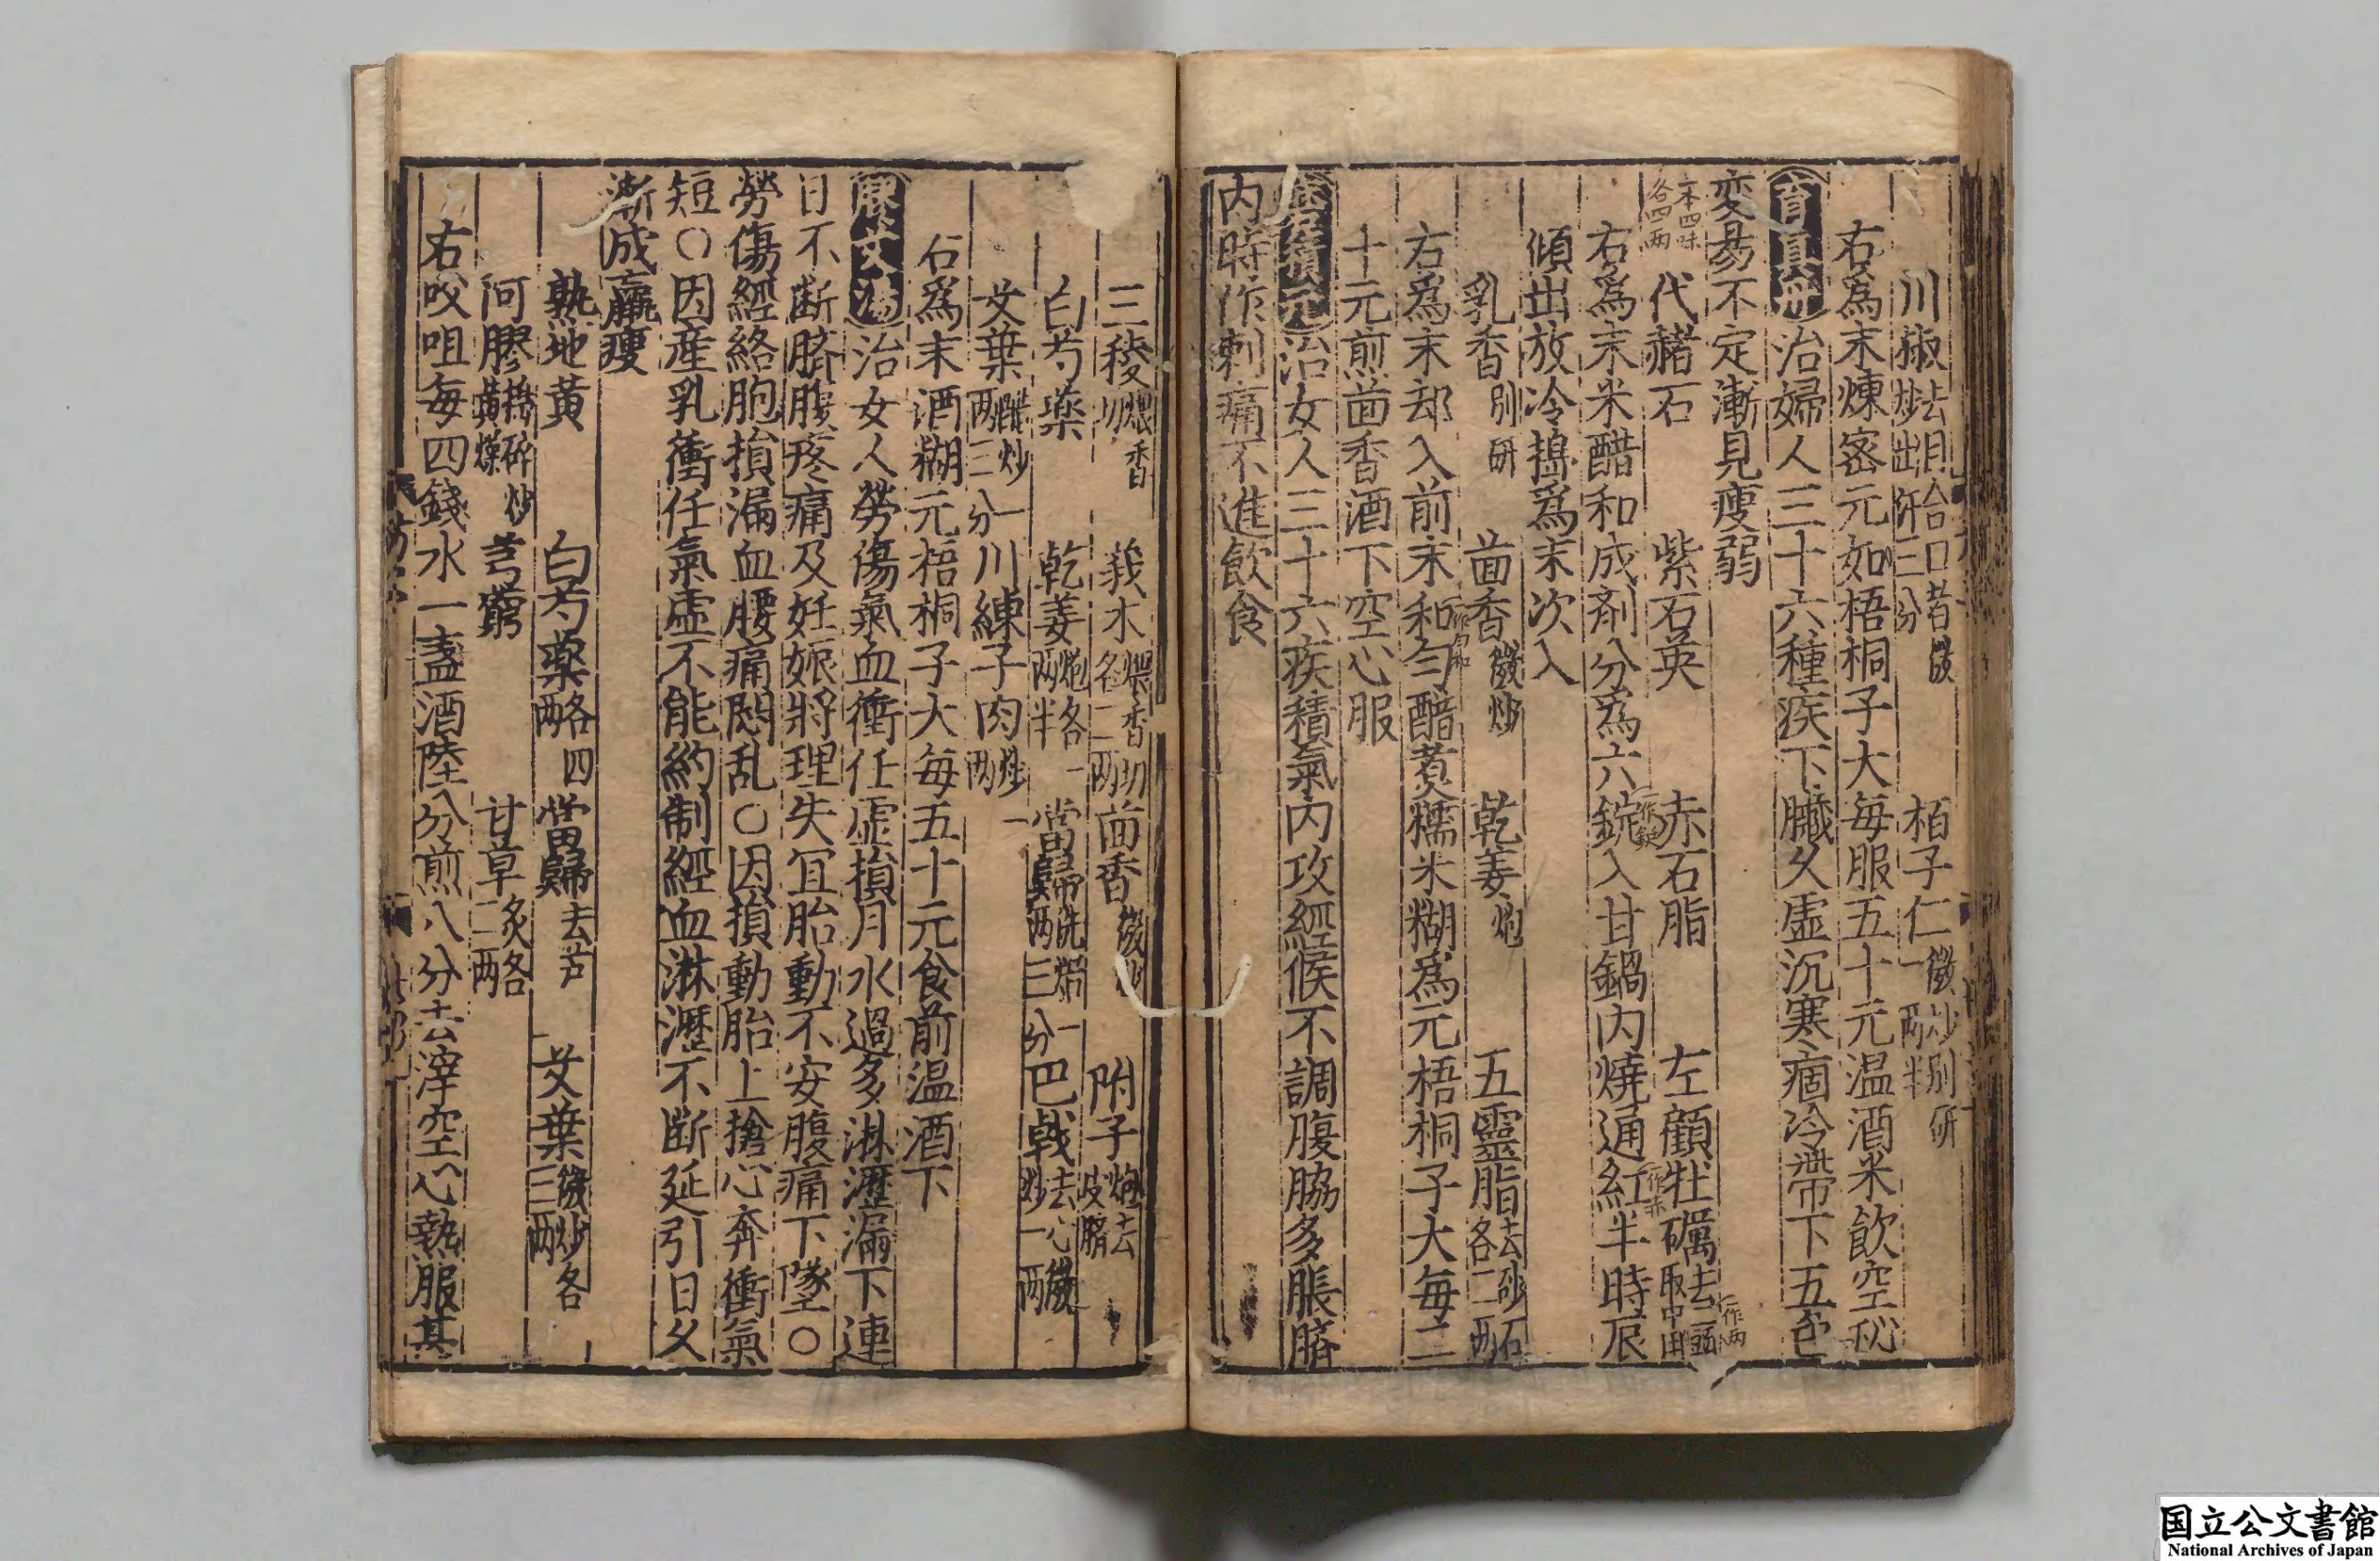 川椒去目合口者微炒出汗三分 栢子仁微炒別研一两半
右為末煉蜜元如梧桐子大每服五十元温酒米飲空心
治婦人三十六種疾下臓久虚沉寒痼冷帶下五色
变易不定漸見瘦弱
一本四味各四两 代赭石 紫石英 赤石脂 左顧牡礪去二頭取中用
右為末米醋和成剤分為六錠入甘鍋内燒通紅半時辰
傾出放冷搗為末次入
乳香別研 茴香微炒 乾姜炮 五靈脂去砂石各二两
右為末却入前末和勻醋煮糯米糊為元梧桐子大每二
十元煎茴香酒下空心服
治女人三十六疾積氣内攻經候不調腹脇多脹臍
内時作刺痛不進飲食
三稜煨香切 莪朮煨香切各二两 茴香微炒 附子炮去皮臍
白芍薬 乾姜炮各一两半 當歸洗焙一两三分 巴戟去心微炒一两
艾葉醋炒一两三分 川練子肉炒一两
右為末酒糊元梧桐子大每五十元食前温酒下
膠艾湯 治女人勞傷氣血衝任虚損月水過多淋瀝漏下連
日不断臍腹疼痛及妊娠將理失冝胎動不安腹痛下墜〇
勞傷經絡胞損漏血腰痛悶乱〇因損動胎上搶心奔衝氣
短〇因産乳衝任氣虚不能約制經血淋瀝不断延引日久
漸成羸瘦
熟地黃 白芍薬各四两 當歸去芦 艾葉微炒各三两
阿膠搗碎炒黃燥 芎藭 甘草炙各二两
右㕮咀每四錢水一盞酒陸分煎八分去滓空心熱服甚
国立公文書館
National Archives of Japan